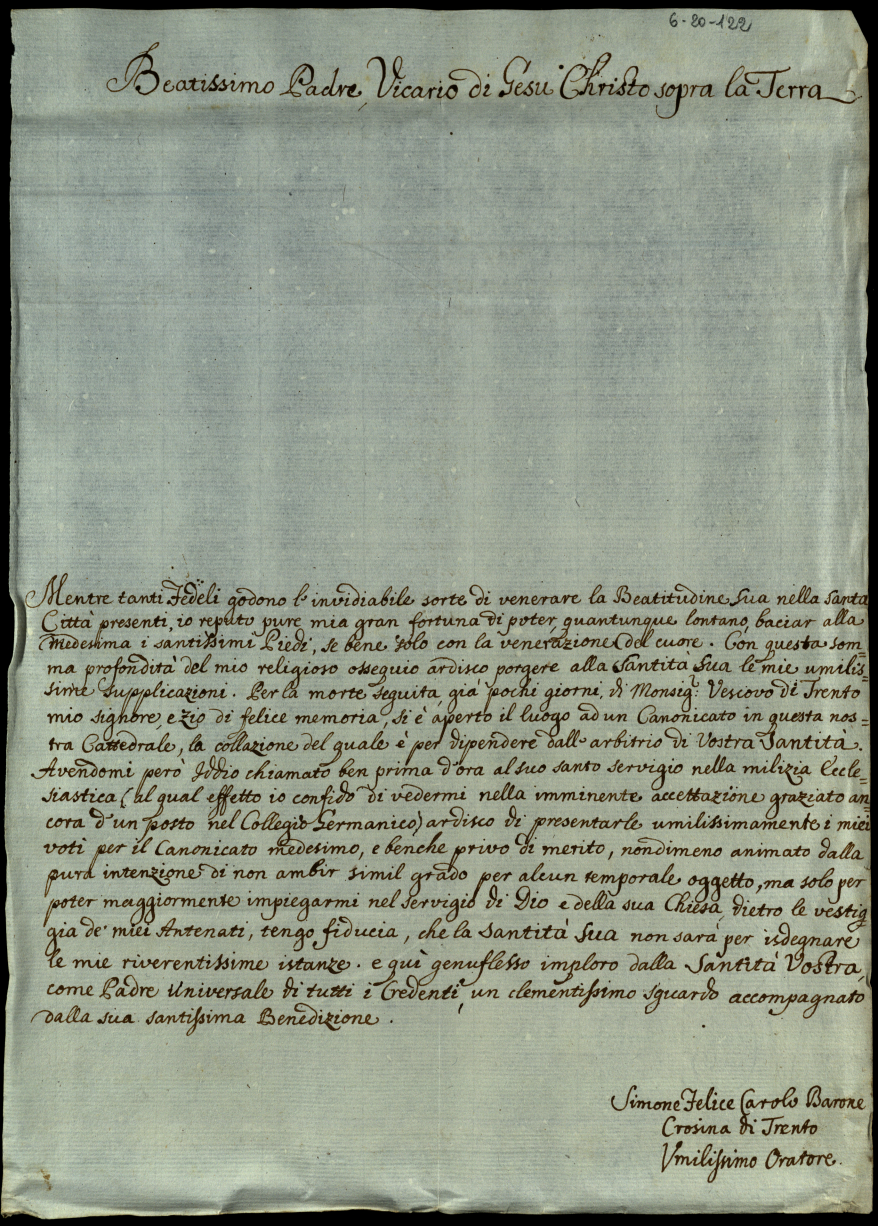 6-20-122
Beatissimo Padre, Vicario di Gesu' Christo sopra la Terra
Mentre tanti Fedeli godono l'invidiabile sorte di venerare la Beatitudine Sua nella Santa
Città presenti, io reputo pure mia gran fortuna di poter, quantunque lontano, baciar alla
Medesima i santissimi Piedi, se bene solo con la venerazione del cuore. Con questa som=
ma profondità del mio religioso ossequio ardisco porgere alla Santità Sua le mie umilis=
sime supplicazioni. Per la morte seguita, già pochi giorni, di Monsig.r Vescovo di Trento
mio signore, e zio di felice memoria, si è aperto il luogo ad un Canonicato in questa nos=
tra Cattedrale, la collazione del quale è per dipendere dall'arbitrio di Vostra Santità.
Avendomi però Iddio chiamato ben prima d'ora al suo santo servigio nella milizia Eccle=
siastica (al qual effetto io confido di vedermi nella imminente accettazione graziato an=
cora d'un posto nel Collegio Germanico) ardisco di presentarle umilissimamente i miei
voti per il Canonicato medesimo, e benche privo di merito, nondimeno animato dalla
pura intenzione di non ambir simil grado per alcun temporale oggetto, ma solo per
poter maggiormente impiegarmi nel servigio di Dio e della sua Chiesa, dietro le vestig=
gia de' miei Antenati, tengo fiducia, che la Santità Sua non sarà per isdegnare
le mie riverentissime istanze. e quì genuflesso imploro dalla Santità Vostra,
come Padre Universale di tutti i Credenti, un clementissimo sguardo accompagnato
dalla sua santissima Benedizione.
Simone Felice Carolo Barone
Crosina di Trento
Vmilissimo Oratore.